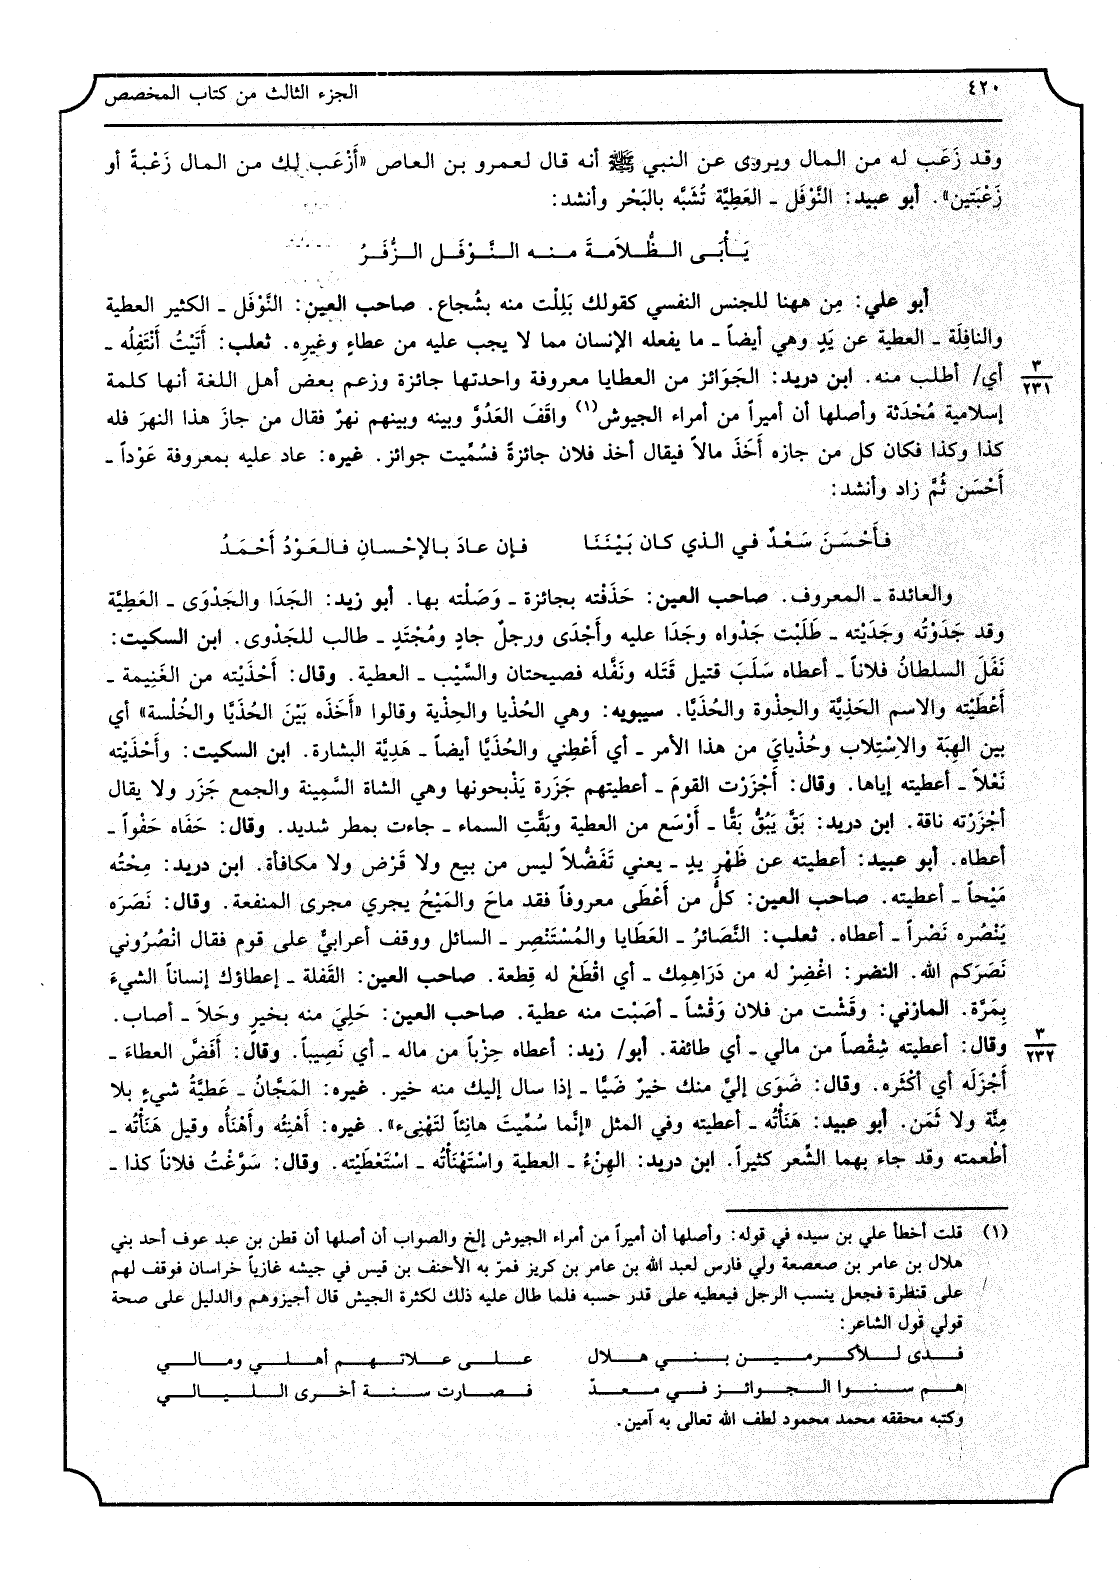 ٤٢٠
الجزء الثالث من كتاب المخصص
وقد زَعَب له من المال ويروى عن النبي ﷺ أنه قال لعمرو بن العاص «أَزْعَب لك من المال زَعْبةً أو
زَعْبَتين». أبو عبيد: النَّوْفَل ـ العَطِيَّة تُشَبَّه بالبَحْر وأنشد:
يَـأْبَـى الظُّـلاَمـةَ مـنـه الـنَّـوْفَـل الـزُّفَـرُ
أبو علي: مِن ههنا للجنس النفسي كقولك بَلِلْت منه بشُجاع. صاحب العين: النَّوْفَل ـ الكثير العطية
والنافِلَة ـ العطية عن يَدٍ وهي أيضاً ـ ما يفعله الإنسان مما لا يجب عليه من عطاءٍ وغيرِه. ثعلب: أَتَيْتُ أَنْتَفِلُه ـ
أي/ أطلب منه. ابن دريد: الجَوَائز من العطايا معروفة واحدتها جائزة وزعم بعض أهل اللغة أنها كلمة
٣
٢٣١
إسلامية مُحْدَثة وأصلها أن أميراً من أمراء الجيوش(١) واقَفَ العَدُوَّ وبينه وبينهم نهرٌ فقال من جازَ هذا النهرَ فله
كذا وكذا فكان كل من جازه أَخَذَ مالاً فيقال أخذ فلان جائزةً فسُمِّيت جوائز. غيره: عاد عليه بمعروفة عَوْداً ـ
أَحْسَن ثُمَّ زاد وأنشد:
فـأَحْـسَـنَ سَـعْـدٌ فـي الـذي كان بَـيْـنَـنَـا فـإن عـادَ بـالإحْـسـانِ فـالـعَـوْدُ أَحْـمَـدُ
والعائدة ـ المعروف. صاحب العين: حَذَفْته بجائزة ـ وَصَلْته بها. أبو زيد: الجَدَا والجَدْوَى ـ العَطِيَّة
وقد جَدَوْتُه وجَدَيْته ـ طَلَبْت جَدْواه وجَدَا عليه وأَجْدَى ورجلٌ جادٍ ومُجْتَدٍ ـ طالب للجَدْوى. ابن السكيت:
نَفَلَ السلطانُ فلاناً ـ أعطاه سَلَبَ قتيل قَتَله ونَفَّله فصيحتان والسَّيْب ـ العطية. وقال: أَحْذَيْته من الغَنِيمة ـ
أَعْطَيْته والاسم الحَذِيَّة والحِذوة والحُذَيَّا. سيبويه: وهي الحُذْيا والحِذْية وقالوا «أَخَذه بَيْنَ الحُذَيَّا والخُلْسة» أي
بين الهِبَة والاسْتِلاب وحُذْيايَ من هذا الأمر ـ أي أَعْطِني والحُذَيَّا أيضاً ـ هَدِيَّة البشارة. ابن السكيت: وأَحْذَيْته
نَعْلاً ـ أعطيته إياها. وقال: أَجْزَرْت القومَ ـ أعطيتهم جَزَرة يَذْبحونها وهي الشاة السَّمِينة والجمع جَزَر ولا يقال
أجْزَرْته ناقة. ابن دريد: بَقَّ يَبُقُّ بَقًّا ـ أَوْسَع من العطية وبَقَّتِ السماء ـ جاءت بمطر شديد. وقال: حَفَاه حَفْواً ـ
أعطاه. أبو عبيد: أعطيته عن ظَهْرِ يدٍ ـ يعني تَفَضُّلاً ليس من بيع ولا قَرْض ولا مكافأة. ابن دريد: مِحْتُه
مَيْحاً ـ أعطيته. صاحب العين: كلُّ من أَعْطَى معروفاً فقد ماحَ والمَيْحُ يجري مجرى المنفعة. وقال: نَصَرَه
يَنْصُره نَصْراً ـ أعطاه. ثعلب: النَّصَائرُ ـ العَطَايا والمُسْتَنْصِر ـ السائل ووقف أعرابيٌّ على قوم فقال انْصُرُوني
نَصَرَكم الله. النضر: اغْضِرْ له من دَرَاهِمِك ـ أي اقْطَعْ له قِطعة. صاحب العين: القَفلة ـ إعطاؤك إنساناً الشيءَ
بِمَرَّة. المازني: وقَشْت من فلان وَقْشاً ـ أصَبْت منه عطية. صاحب العين: حَلِيَ منه بخيرٍ وحَلاَ ـ أصاب.
وقال: أعطيته شِقْصاً من مالي ـ أي طائفة. أبو/ زيد: أعطاه حِزْباً من ماله ـ أي نَصِيباً. وقال: أَفَضَّ العطاءَ ـ
٣
٢٣٢
أَجْزَلَه أي أكْثَره. وقال: ضَوَى إليَّ منك خيرٌ ضَيًّا ـ إذا سال إليك منه خير. غيره: المَجَّانُ ـ عَطيَّةُ شيءٍ بلا
مِنَّة ولا ثَمَن. أبو عبيد: هَنَأْتُه ـ أعطيته وفي المثل «إنَّما سُمِّيتَ هانِئاً لتَهْنِىء». غيره: أَهْنِئُه وأَهْنَأُه وقيل هَنَأْتُه ـ
أطْعمته وقد جاء بهما الشِّعر كثيراً. ابن دريد: الهِنْءُ ـ العطية واسْتَهْنَأْتُه ـ اسْتَعْطَيْته. وقال: سَوَّغْتُ فلاناً كذا ـ
(١) قلت أخطأ علي بن سيده في قوله: وأصلها أن أميراً من أمراء الجيوش إلخ والصواب أن أصلها أن قطن بن عبد عوف أحد بني
هلال بن عامر بن صعصعة ولي فارس لعبد الله بن عامر بن كريز فمرّ به الأحنف بن قيس في جيشه غازياً خراسان فوقف لهم
على قنطرة فجعل ينسب الرجل فيعطيه على قدر حسبه فلما طال عليه ذلك لكثرة الجيش قال أجيزوهم والدليل على صحة
قولي قول الشاعر:
فـدى لـلأكـرمـيـن بـنـي هـلال عـلـى عـلاتـهـم أهـلـي ومـالـي
هـم سـنـوا الـجـوائـز فـي مـعـدّ فـصـارت سـنـة أخـرى الـلـيـالـي
وكتبه محققه محمد محمود لطف الله تعالى به آمين.